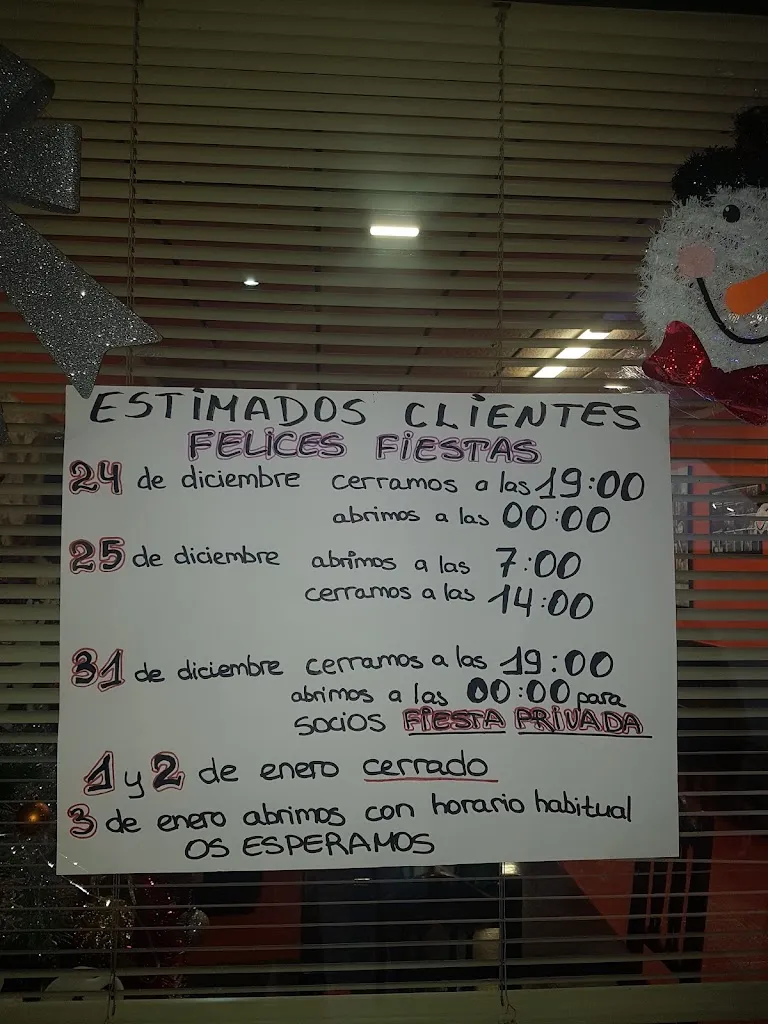 ESTIMADOS CLIENTES
FELICES FIESTAS
24 de diciembre cerramos a las 19:00
abrimos a las 00:00
25 de diciembre abrimos a las 7:00
cerramos a las 14:00
31 de diciembre cerramos a las 19:00
abrimos a las 00:00 para
socios FIESTA PRIVADA
1 y 2 de enero cerrado
3 de enero abrimos con horario habitual
OS ESPERAMOS